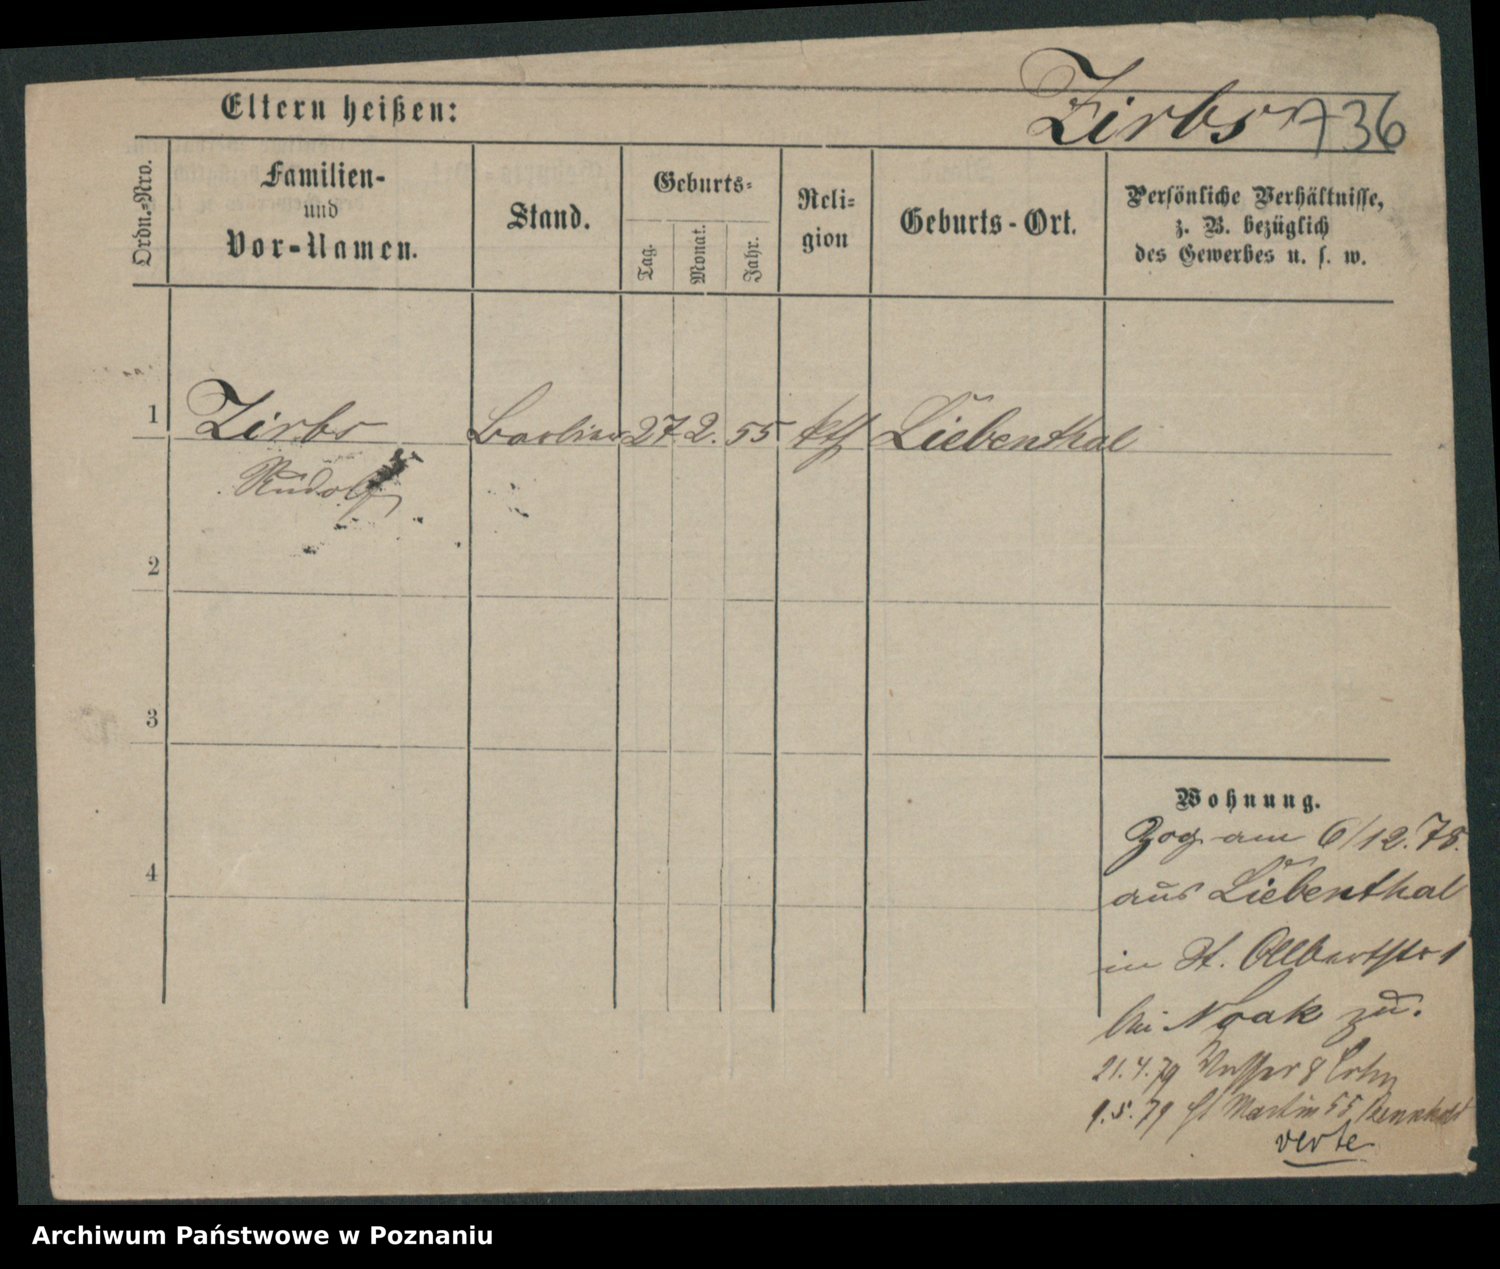 Eltern heißen:
Zirbs 736
Ordn.-Nro.
Familien-
und
Vor-Namen.
Stand.
Geburts-
Tag.
Monat.
Jahr.
Reli-
gion
Geburts-Ort.
Persönliche Verhältnisse,
z. B. bezüglich
des Gewerbes u. s. w.
1 Zirbs 27 2. 55 kth Liebenthal
Rudolf
2
3
4
Wohnung.
Zog am 6/12.78.
aus Liebenthal
in St. Adalbertstr 1
bei Noak zu.
21.4.79 8
9.5.79 St Martin 55
verte
Archiwum Państwowe w Poznaniu